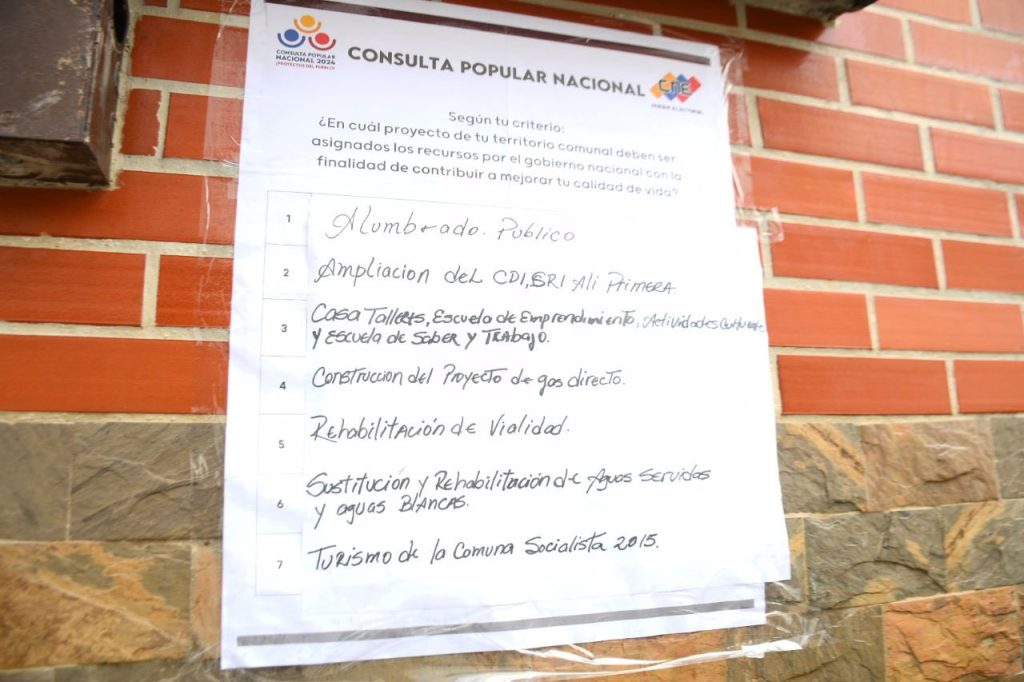 CONSULTA POPULAR
NACIONAL 2024
¡PROYECTOS DEL PUEBLO!
CONSULTA POPULAR NACIONAL
CNE
PODER ELECTORAL
Según tu criterio:
¿En cuál proyecto de tu territorio comunal deben ser
asignados los recursos por el gobierno nacional con la
finalidad de contribuir a mejorar tu calidad de vida?
1 Alumbrado. Publico
2 Ampliacion deL CDI, SRI Ali Primera
3 Casa Talleres, Escuela de Emprendimiento, Actividades
y Escuela de Saber y Trabajo.
4 Construccion del Proyecto de gas directo.
5 Rehabilitación de Vialidad.
6 Sustitución y Rehabilitación de Aguas Servidas
y aguas Blancas.
7 Turismo de la Comuna Socialista 2015.